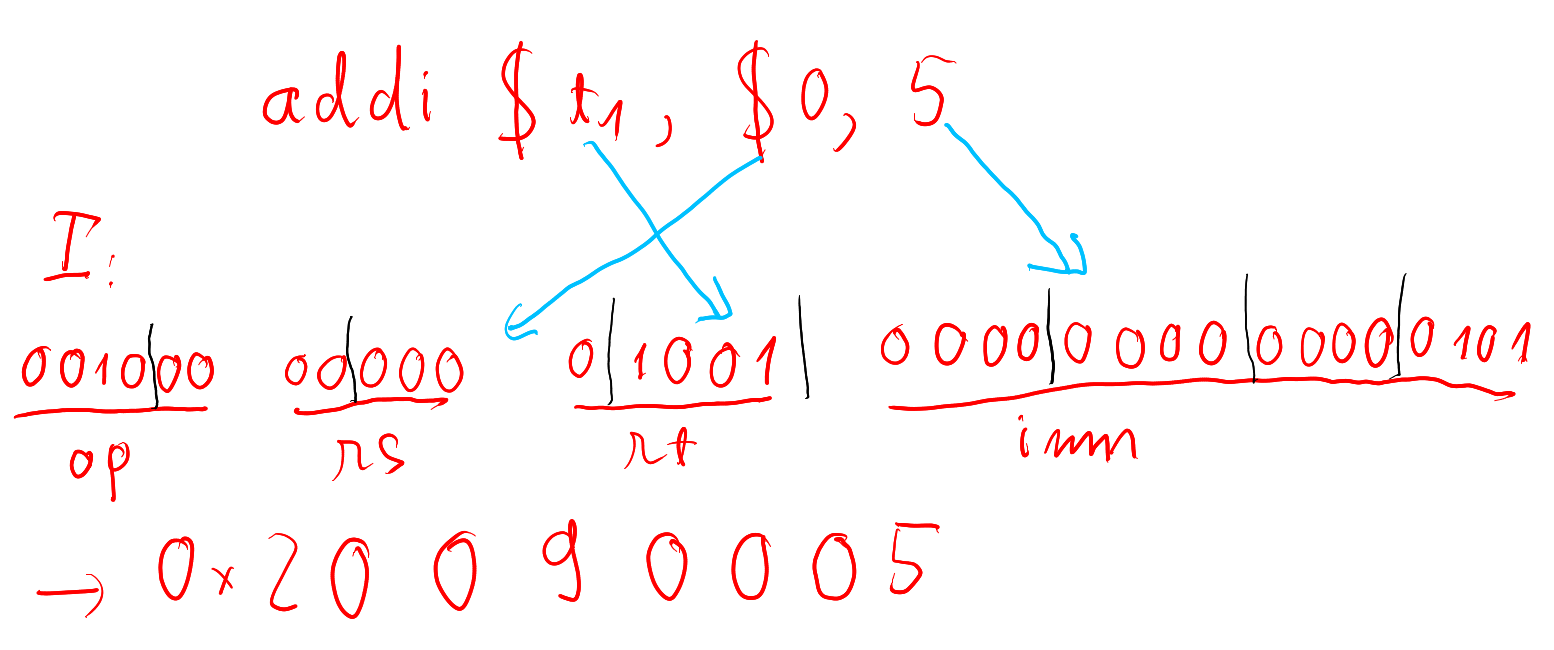 addi $t1, $0, 5
I:
001000 00000 01001 0000000000000101
op rs rt imm
→ 0x20090005